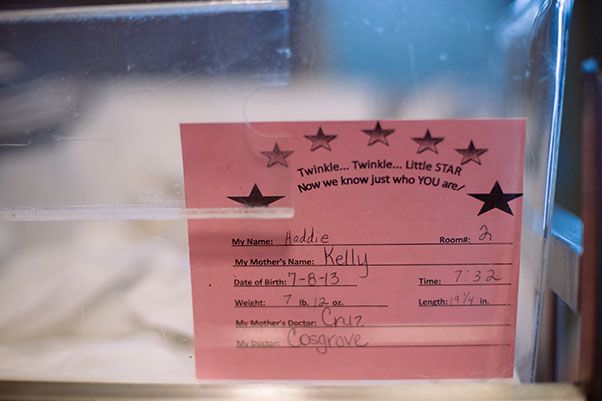 Twinkle... Twinkle... Little STAR
Now we know just who YOU are!
My Name: Haddie Room#: 2
My Mother's Name: Kelly
Date of Birth: 7-8-13 Time: 7:32
Weight: 7 lb. 12 oz. Length: 19 1/4 in.
My Mother's Doctor: Cruz
My Doctor: Cosgrove